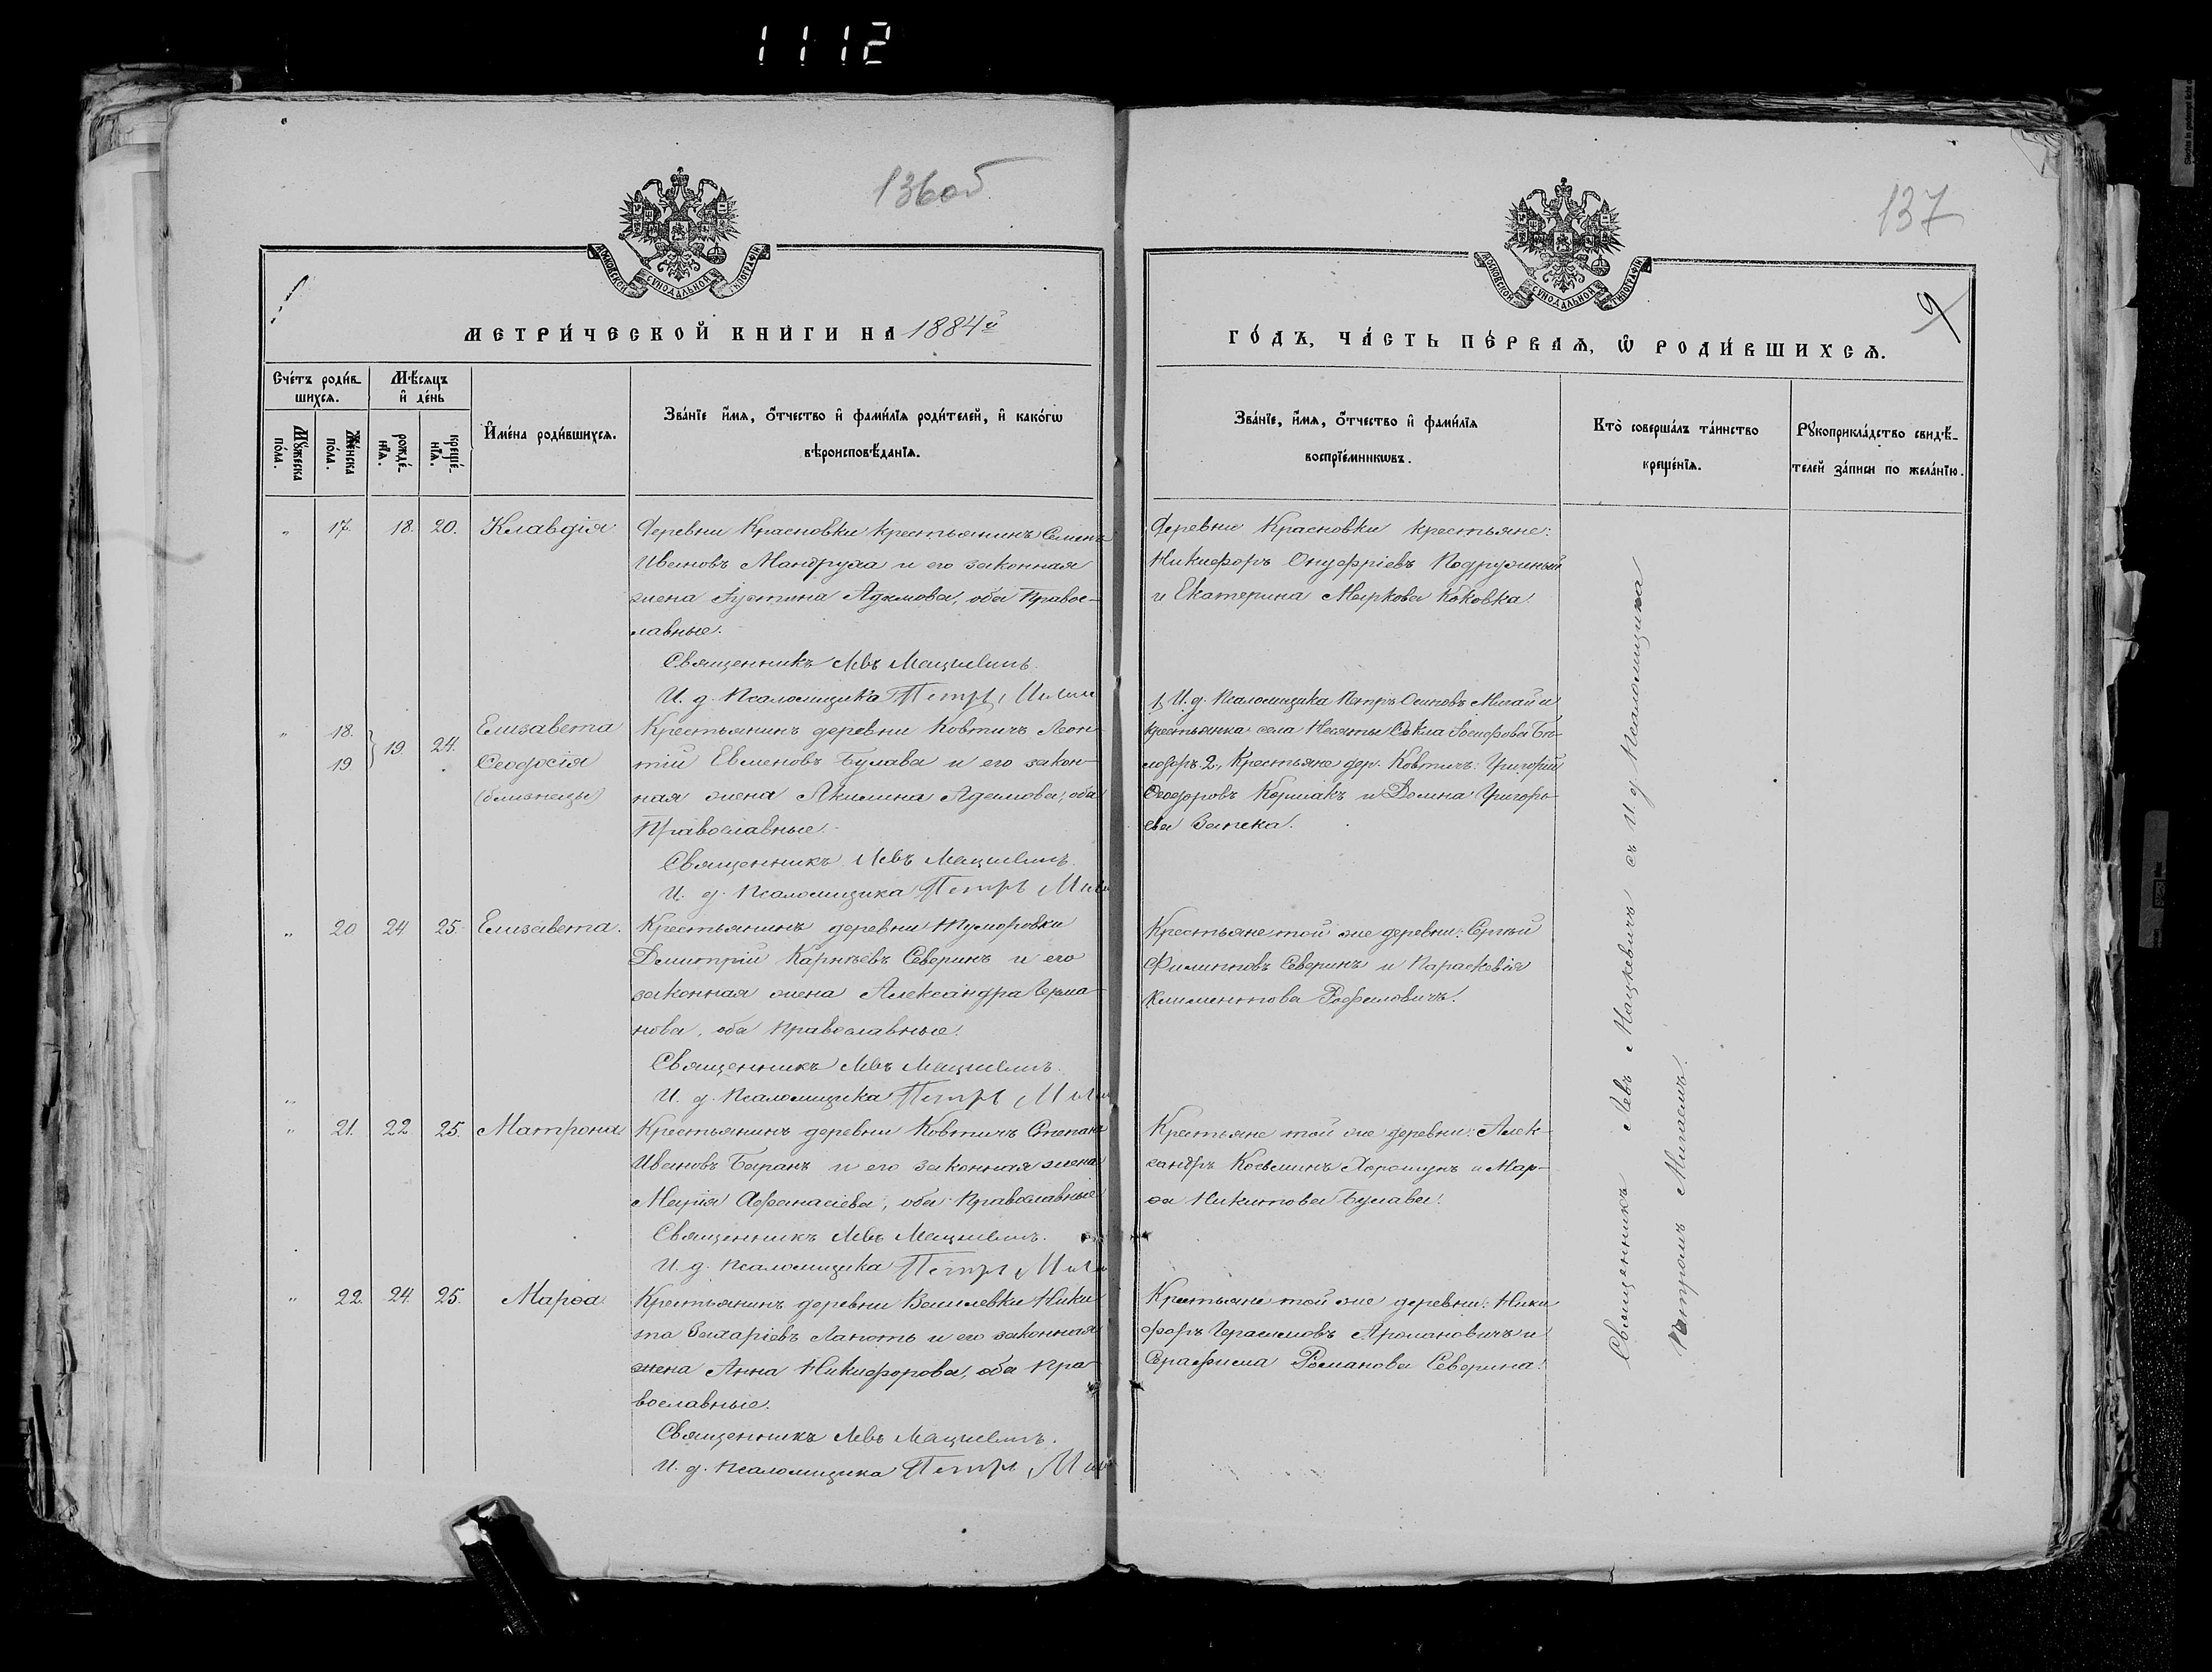 1112
136об
137
9
МОСКОВСКОЙ СѴНОДАЛЬНОЙ ТИПОГРАФІИ
МОСКОВСКОЙ СѴНОДАЛЬНОЙ ТИПОГРАФІИ
МЕТРИ́ЧЕСКОЙ КНИ́ГИ НА 1884й
ГО́ДЪ, ЧА́СТЬ ПЕ́РВАѦ, Ѡ҆ РОДИ́ВШИХСѦ.
Сче́тъ роди́в-
шихсѧ.
Мѣ́сѧцъ
и҆ де́нь
Мꙋ́жеска
по́ла.
Же́нска
по́ла.
рожде́-
нїѧ.
креще́-
нїѧ.
И҆мена̀ роди́вшихсѧ.
Зва́нїе и҆́мѧ, ѻ҆́тчество и҆ фами́лїѧ роди́телей, и҆ како́гѡ
вѣроисповѣ́данїѧ.
Зва́нїе, и҆́мѧ, ѻ҆́тчество и҆ фами́лїѧ
воспрїе́мникѡвъ.
Кто̀ соверша́лъ та́инство
креще́нїѧ.
Рꙋкоприкла́дство свидѣ́-
телей за́писи по жела́нїю.
" 17. 18. 20. Клавдія
Деревни Красновки крестьянинъ Семенъ
Ивановъ Мандруха и его законная
жена Іустина Адамова, оба Правос-
лавные.
Священникъ Левъ Мацкевичъ.
И. д. Псаломщика Петръ
Деревни Красновки крестьяне:
Никифоръ Онуфріевъ Подружный
и Екатерина Маркова Коковка.
" 18. 19. 19. 24. Елизавета
Ѳеодосія
(близнецы)
Крестьянинъ деревни Ковтичъ Леон-
тій Евменовъ Булава и его закон-
ная жена Акилина Адамова, оба
Православные.
Священникъ Левъ Мацкевичъ.
И. д. Псаломщика Петръ
1, И. д. Псаломщика Петръ Осиповъ Мигай и
крестьянка села Ѳекла Іосифова
2, Крестьяне дер. Ковтичъ: Григорій
Ѳеодоровъ и Домна Григорь-
ева
" 20 24 25. Елизавета.
Крестьянинъ деревни
Димитрій Карпѣевъ Северинъ и его
законная жена Александра Герма-
нова, оба Православные.
Священникъ Левъ Мацкевичъ.
И. д. Псаломщика Петръ
Крестьяне той же деревни: Сергій
Филипповъ Северинъ и Параскевія
Климентова Рафаловичъ.
" 21. 22 25. Матрона
Крестьянинъ деревни Ковтичъ Степанъ
Ивановъ Баранъ и его законная жена
Марія Аѳанасіева, оба Православные
Священникъ Левъ Мацкевичъ.
И. д. Псаломщика Петръ
Крестьяне той же деревни: Алек-
сандръ Косьминъ и Мар-
ѳа Никитова Булава.
" 22. 24. 25. Марѳа
Крестьянинъ деревни Василевки Ники-
та Захаріевъ Лапоть и его законная
жена Анна Никифорова, оба Пра-
вославные.
Священникъ Левъ Мацкевичъ.
И. д. Псаломщика Петръ
Крестьяне той же деревни: Ники-
форъ Герасимовъ Аромановичъ и
Серафима Романова Северина.
Священникъ Левъ Мацкевичъ съ И. д. Псаломщика
Петромъ Мигаемъ.